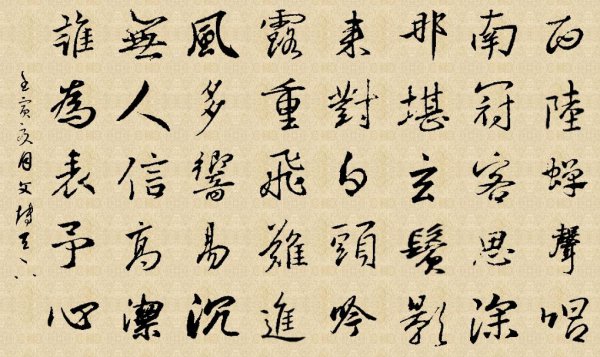 西陸蟬聲唱
南冠客思深
那堪玄鬢影
來對白頭吟
露重飛難進
風多響易沉
無人信高潔
誰為表予心
壬寅亥月文博